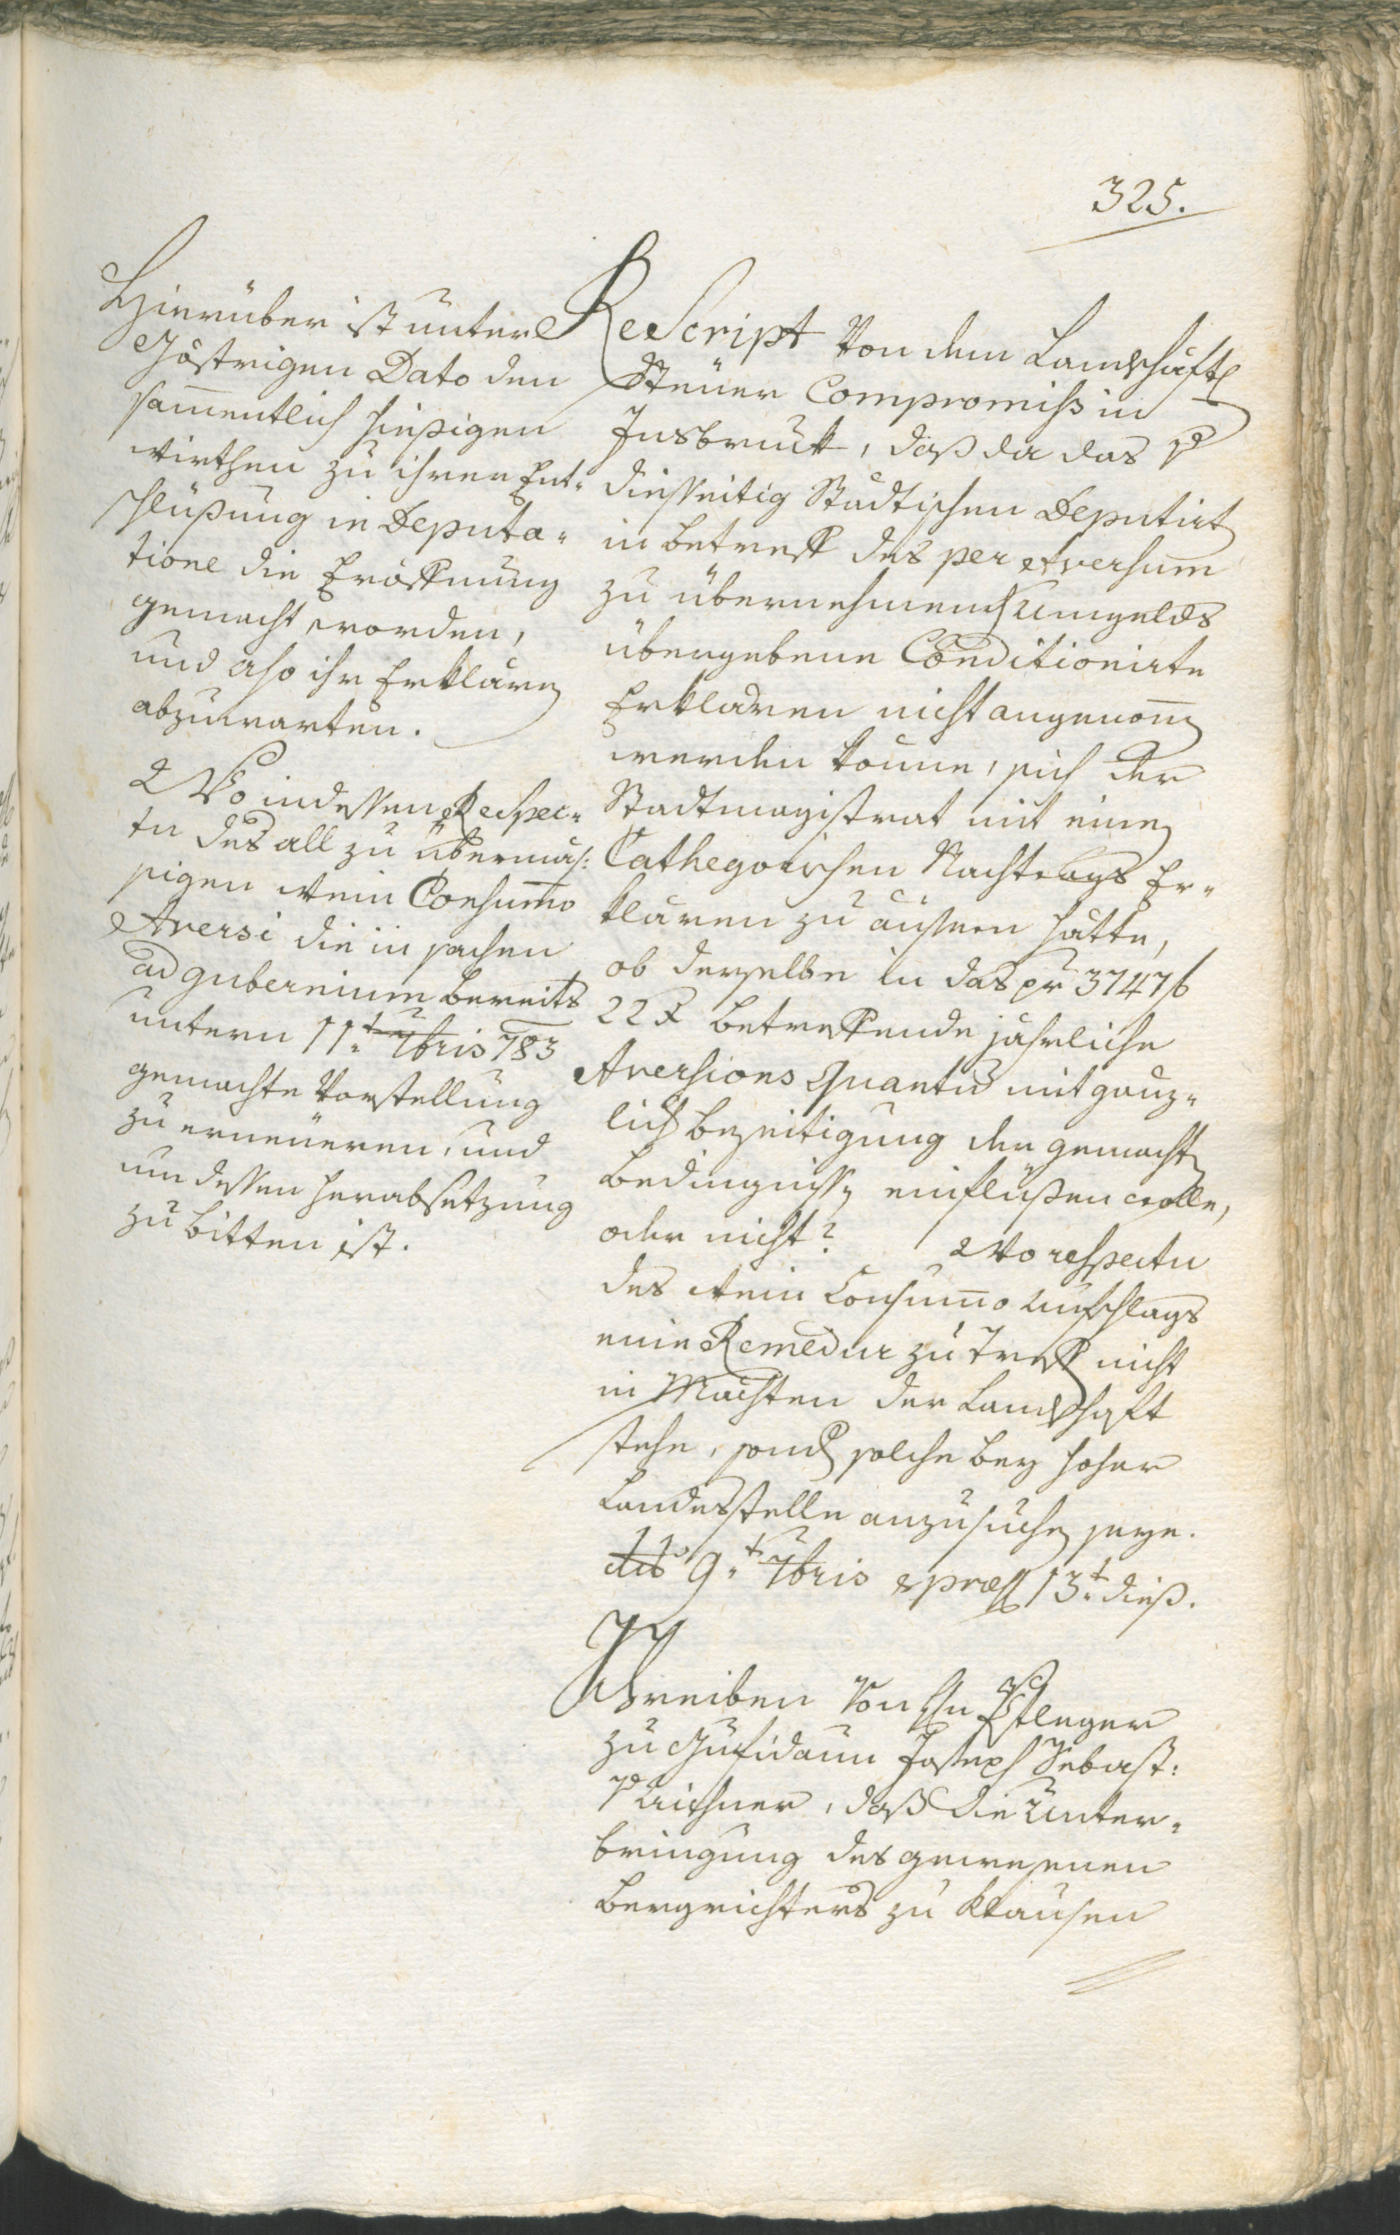 325.
Hierüber ist untere
Göstrigen Dato den
sam̅entlich hießigen
wirthen zu ihrer Ent-
schlüßung in Deputa-
tione die Eröffnung
gemacht worden,
und also ihr Erklären
abzuwarten.
Wo indessen Respec-
tu des all zu übermäs-
sigen wein Consum̅o
Aversi die in sachen
ad gubernium bereits
untern 11t 7bris 783
gemachte Vorstellung
zu erneüeren, und
um dessen herabsetzung
zu bitten ist.
ReScript Von dem Landschäftl
Steüer Compromiß in
Insbruk, daß da das
diesseitig Städtischen Deputirt
in betreff des per Aversum
zu übernehmend Umgelds
übergebene Conditionirte
Erklären nicht angenom̅
werden könne, sich der
Stadtmagistrat mit einer
Cathegorischen Nachtrags Er-
klären zu äußern hätte,
ob derselbe in das pr 3747 f
22 x betreffende jährliche
Aversions Quantu mit gänz-
lich beseitigung der gemacht
bedingniss einflüßen wolle,
oder nicht? Wo respectu
des wein Consum̅o Aufschlags
eine Remedur zu treff nicht
in Mächten der Landschaft
stehe, sond solche bey hoher
Landesstelle anzusuchen seye.
dto 9t 7bris & præss 13t dieß.
Schreiben Von Hn Pfleger
zu Gufidaun Joseph Sebast:
daß die Unter-
bringung des gewesenen
bergrichters zu Klausen